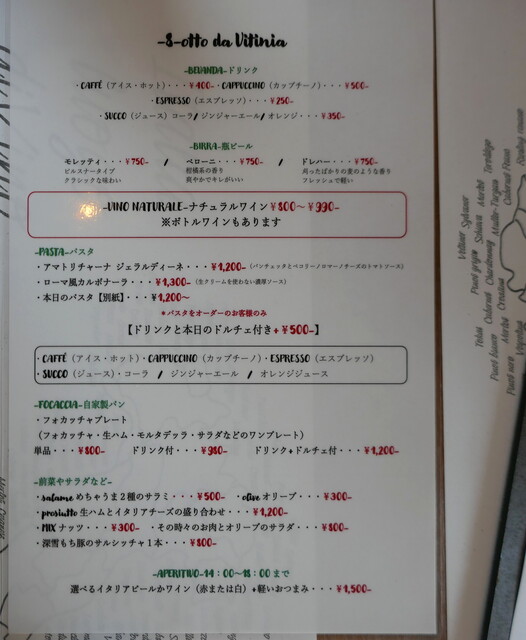 -8-otto da Vitinia
-BEVANDA-ドリンク
・CAFFÈ（アイス・ホット）・・・¥400-・CAPPUCCINO（カップチーノ）・・・¥500-
・ESPRESSO（エスプレッソ）・・・¥250-
・SUCCO（ジュース）コーラ/ ジンジャーエール/ オレンジ・・・¥350-
-BIRRA-瓶ビール
モレッティ・・・¥750- / ペローニ・・・¥750- / ドレハー・・・¥750-
ピルスナータイプ 柑橘系の香り 刈ったばかりの麦のような香り
クラシックな味わい 爽やかでキレがいい フレッシュで軽い
-VINO NATURALE-ナチュラルワイン ¥800～¥990-
※ボトルワインもあります
-PASTA-パスタ
・アマトリチャーナ ジェラルディーネ・・・¥1,200-（パンチェッタとペコリーノロマーノチーズのトマトソース）
・ローマ風カルボナーラ・・・¥1,300-（生クリームを使わない濃厚ソース）
・本日のパスタ【別紙】・・・¥1,200～
＊パスタをオーダーのお客様のみ
【ドリンクと本日のドルチェ付き+ ¥500-】
・CAFFÈ（アイス・ホット）・CAPPUCCINO（カップチーノ）・ESPRESSO（エスプレッソ）
・SUCCO（ジュース）・コーラ / ジンジャーエール / オレンジジュース
-FOCACCIA-自家製パン
・フォカッチャプレート
（フォカッチャ・生ハム・モルタデッラ・サラダなどのワンプレート）
単品・・・¥800- ドリンク付・・・¥980- ドリンク+ドルチェ付・・・¥1,200-
-前菜やサラダなど-
・salame めちゃうま２種のサラミ・・・¥500- ・olive オリーブ・・・¥300-
・prosiutto 生ハムとイタリアチーズの盛り合わせ・・・¥1,200-
・MIX ナッツ・・・¥300- ・その時々のお肉とオリーブのサラダ・・・¥800-
・深雪もち豚のサルシッチャ１本・・・¥800-
-APERITIVO-14：00～18：00 まで
選べるイタリアビールかワイン（赤または白）+軽いおつまみ・・・¥1,500-